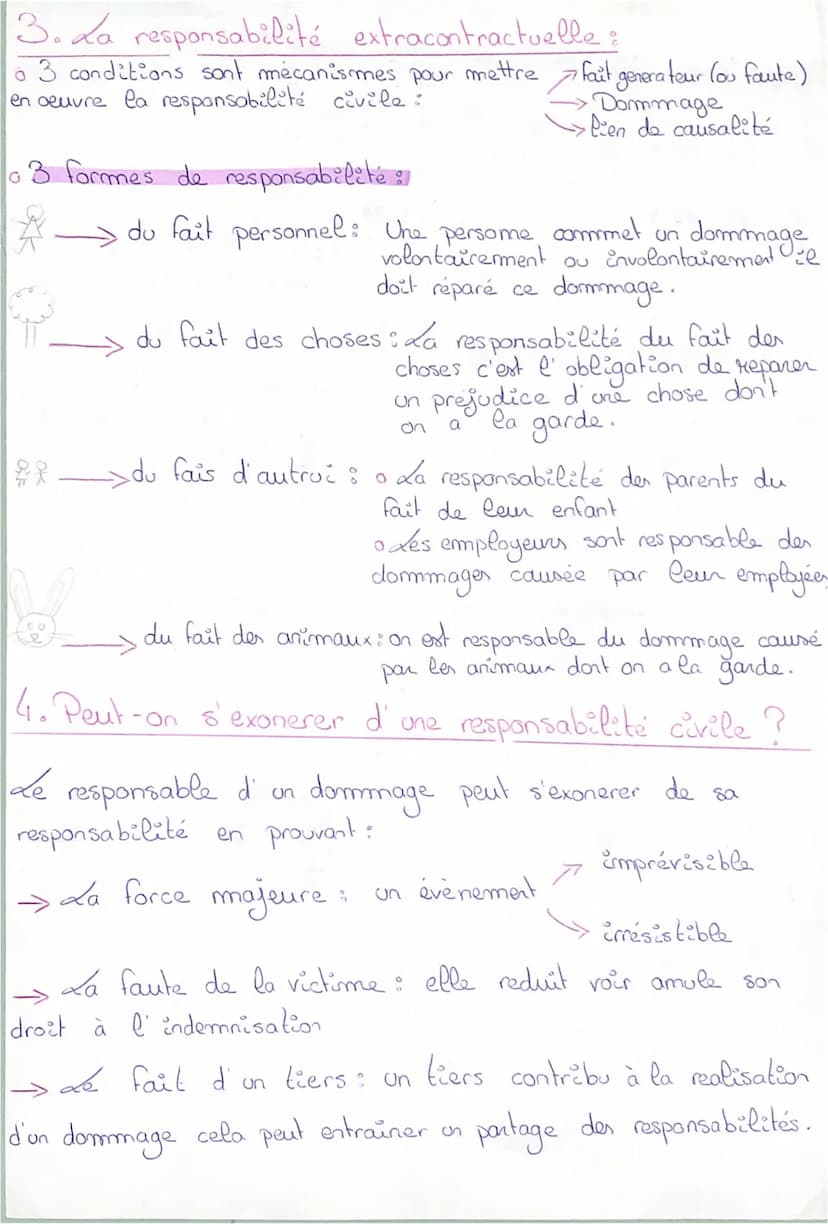 3. La responsabilité extracontractuelle :
o 3 conditions sont mécanismes pour mettre ↗ fait generateur (ou faute)
en oeuvre la responsabilité civile : → Dommage
↘ lien de causalité
o 3 formes de responsabilité :
→ du fait personnel : Une personne commet un dommage
volontairement ou involontairement il
doit réparé ce dommage.
→ du fait des choses : La responsabilité du fait des
choses c'est l'obligation de reparer
un préjudice d'une chose don't
on a la garde.
→ du fais d'autrui : o La responsabilité des parents du
fait de leur enfant
o Les employeurs sont responsable des
dommages causée par leur employées
→ du fait des animaux : on est responsable du dommage causé
par les animaux dont on a la garde.
4. Peut-on s'exonerer d'une responsabilité civile ?
Le responsable d'un dommage peut s'exonerer de sa
responsabilité en prouvant :
↗ imprévisible
→ La force majeure : un évènement
↘ irrésistible
→ La faute de la victime : elle reduit voir annule son
droit à l'indemnisation
→ Le fait d'un tiers : un tiers contribu à la realisation
d'un dommage cela peut entraîner un partage des responsabilités.